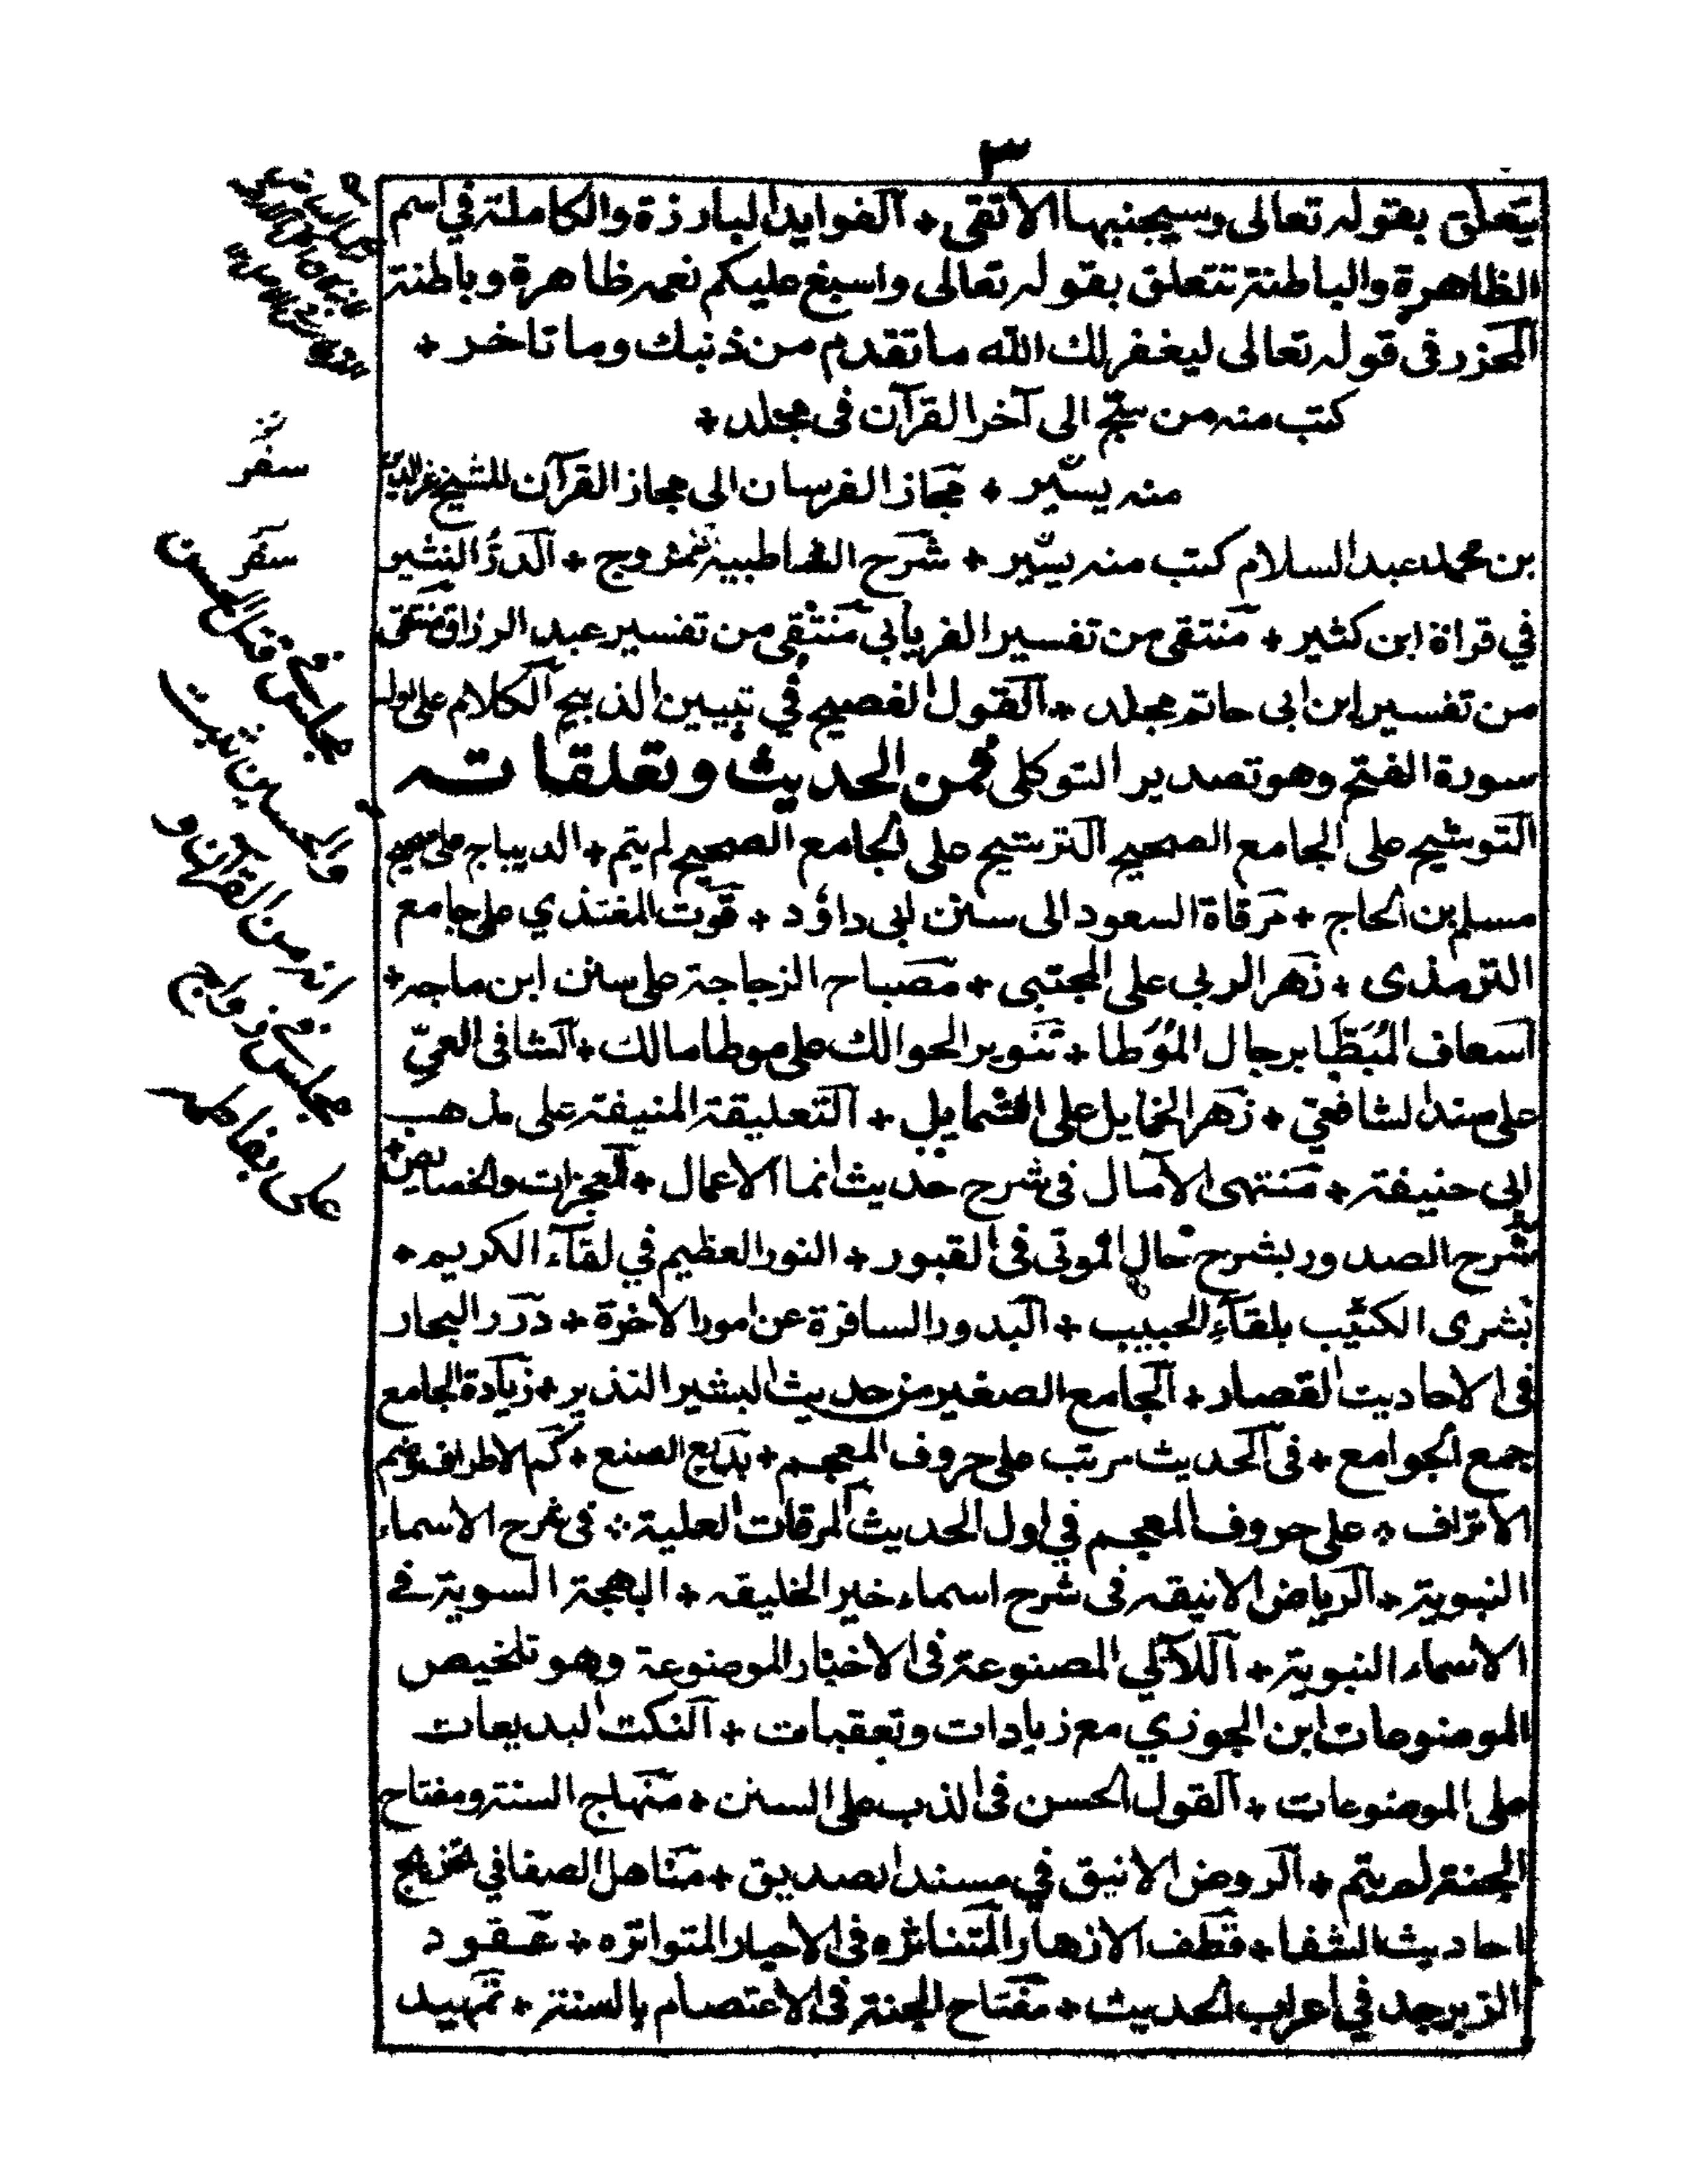 ٣
يتعلق بقوله تعالى وسيجنبها الاتقى + الفوايد البارزة والكاملة في اسم
الظاهرة والباطنة تتعلق بقوله تعالى واسبغ عليكم نعمه ظاهرة وباطنة
المحرر فى قوله تعالى ليغفر لك الله ما تقدم من ذنبك وما تاخر +
كتب منه من سبّح الى آخر القرآن فى مجلد +
منه يسير + مجاز الفرسان الى مجاز القرآن للشيخ عز الدين
بن محمد عبد السلام كتب منه يسير + شرح الشاطبية ممزوج + الدر النثير
في قراة ابن كثير + منتقى من تفسير الفريابي منتقى من تفسير عبد الرزاق منتقى
من تفسير ابن ابى حاتم مجلد + القول الفصيح في تبيين الذبيح الكلام على اول
سورة الفتح وهو تصدير التوكلى فمن الحديث وتعلقاته
التوشيح على الجامع الصحيح الترشيح على الجامع الصحيح لم يتم + الديباج على صحيح
مسلم بن الحاج + مرقاة السعود الى سنن ابى داؤد + قوت المغتذي على جامع
الترمذى + زهر الربى على المجتبى + مصباح الزجاجة على سنن ابن ماجه +
اسعاف المُبَطَّا برجال المُوَطا + تنوير الحوالك على موطا مالك + الشافى العيّ
على مسند الشافعي + زهر الخمايل على الشمايل + التعليقة المنيفة على مذهب
ابى حنيفة + منتهى الآمال فى شرح حديث انما الاعمال + المعجزات والخصايص +
شرح الصدور بشرح حال الموتى فى القبور + النور العظيم في لقآء الكريم +
بشرى الكئيب بلقآء الحبيب + البدور السافرة عن امور الاخرة + درر البحار
فى الاحاديث القصار + الجامع الصغير من حديث البشير النذير + زيادة الجامع
جمع الجوامع + فى الحديث مرتب على حروف المعجم + بديع الصنع + كم الاطراف وضم
الاتراف + على حروف المعجم في اول الحديث المرقات العلية + فى شرح الاسماء
النبوية + الرياض الانيقه فى شرح اسماء خير الخليقه + البهجة السوية في
الاسماء النبوية + اللآلي المصنوعة فى الاخبار الموضوعة وهو تلخيص
الموضوعات ابن الجوزي مع زيادات وتعقبات + النكت البديعات
على الموضوعات + القول الحسن فى الذب على السنن + منهاج السنة ومفتاح
الجنة لم يتم + الروض الانيق في مسند الصديق + مناهل الصفا في تخريج
احاديث الشفا + قطف الازهار المتناثره فى الاخبار المتواتره + عقود
الزبرجد في اعراب الحديث + مفتاح الجنة فى الاعتصام بالسنة + تمهيد
سفر
سفر